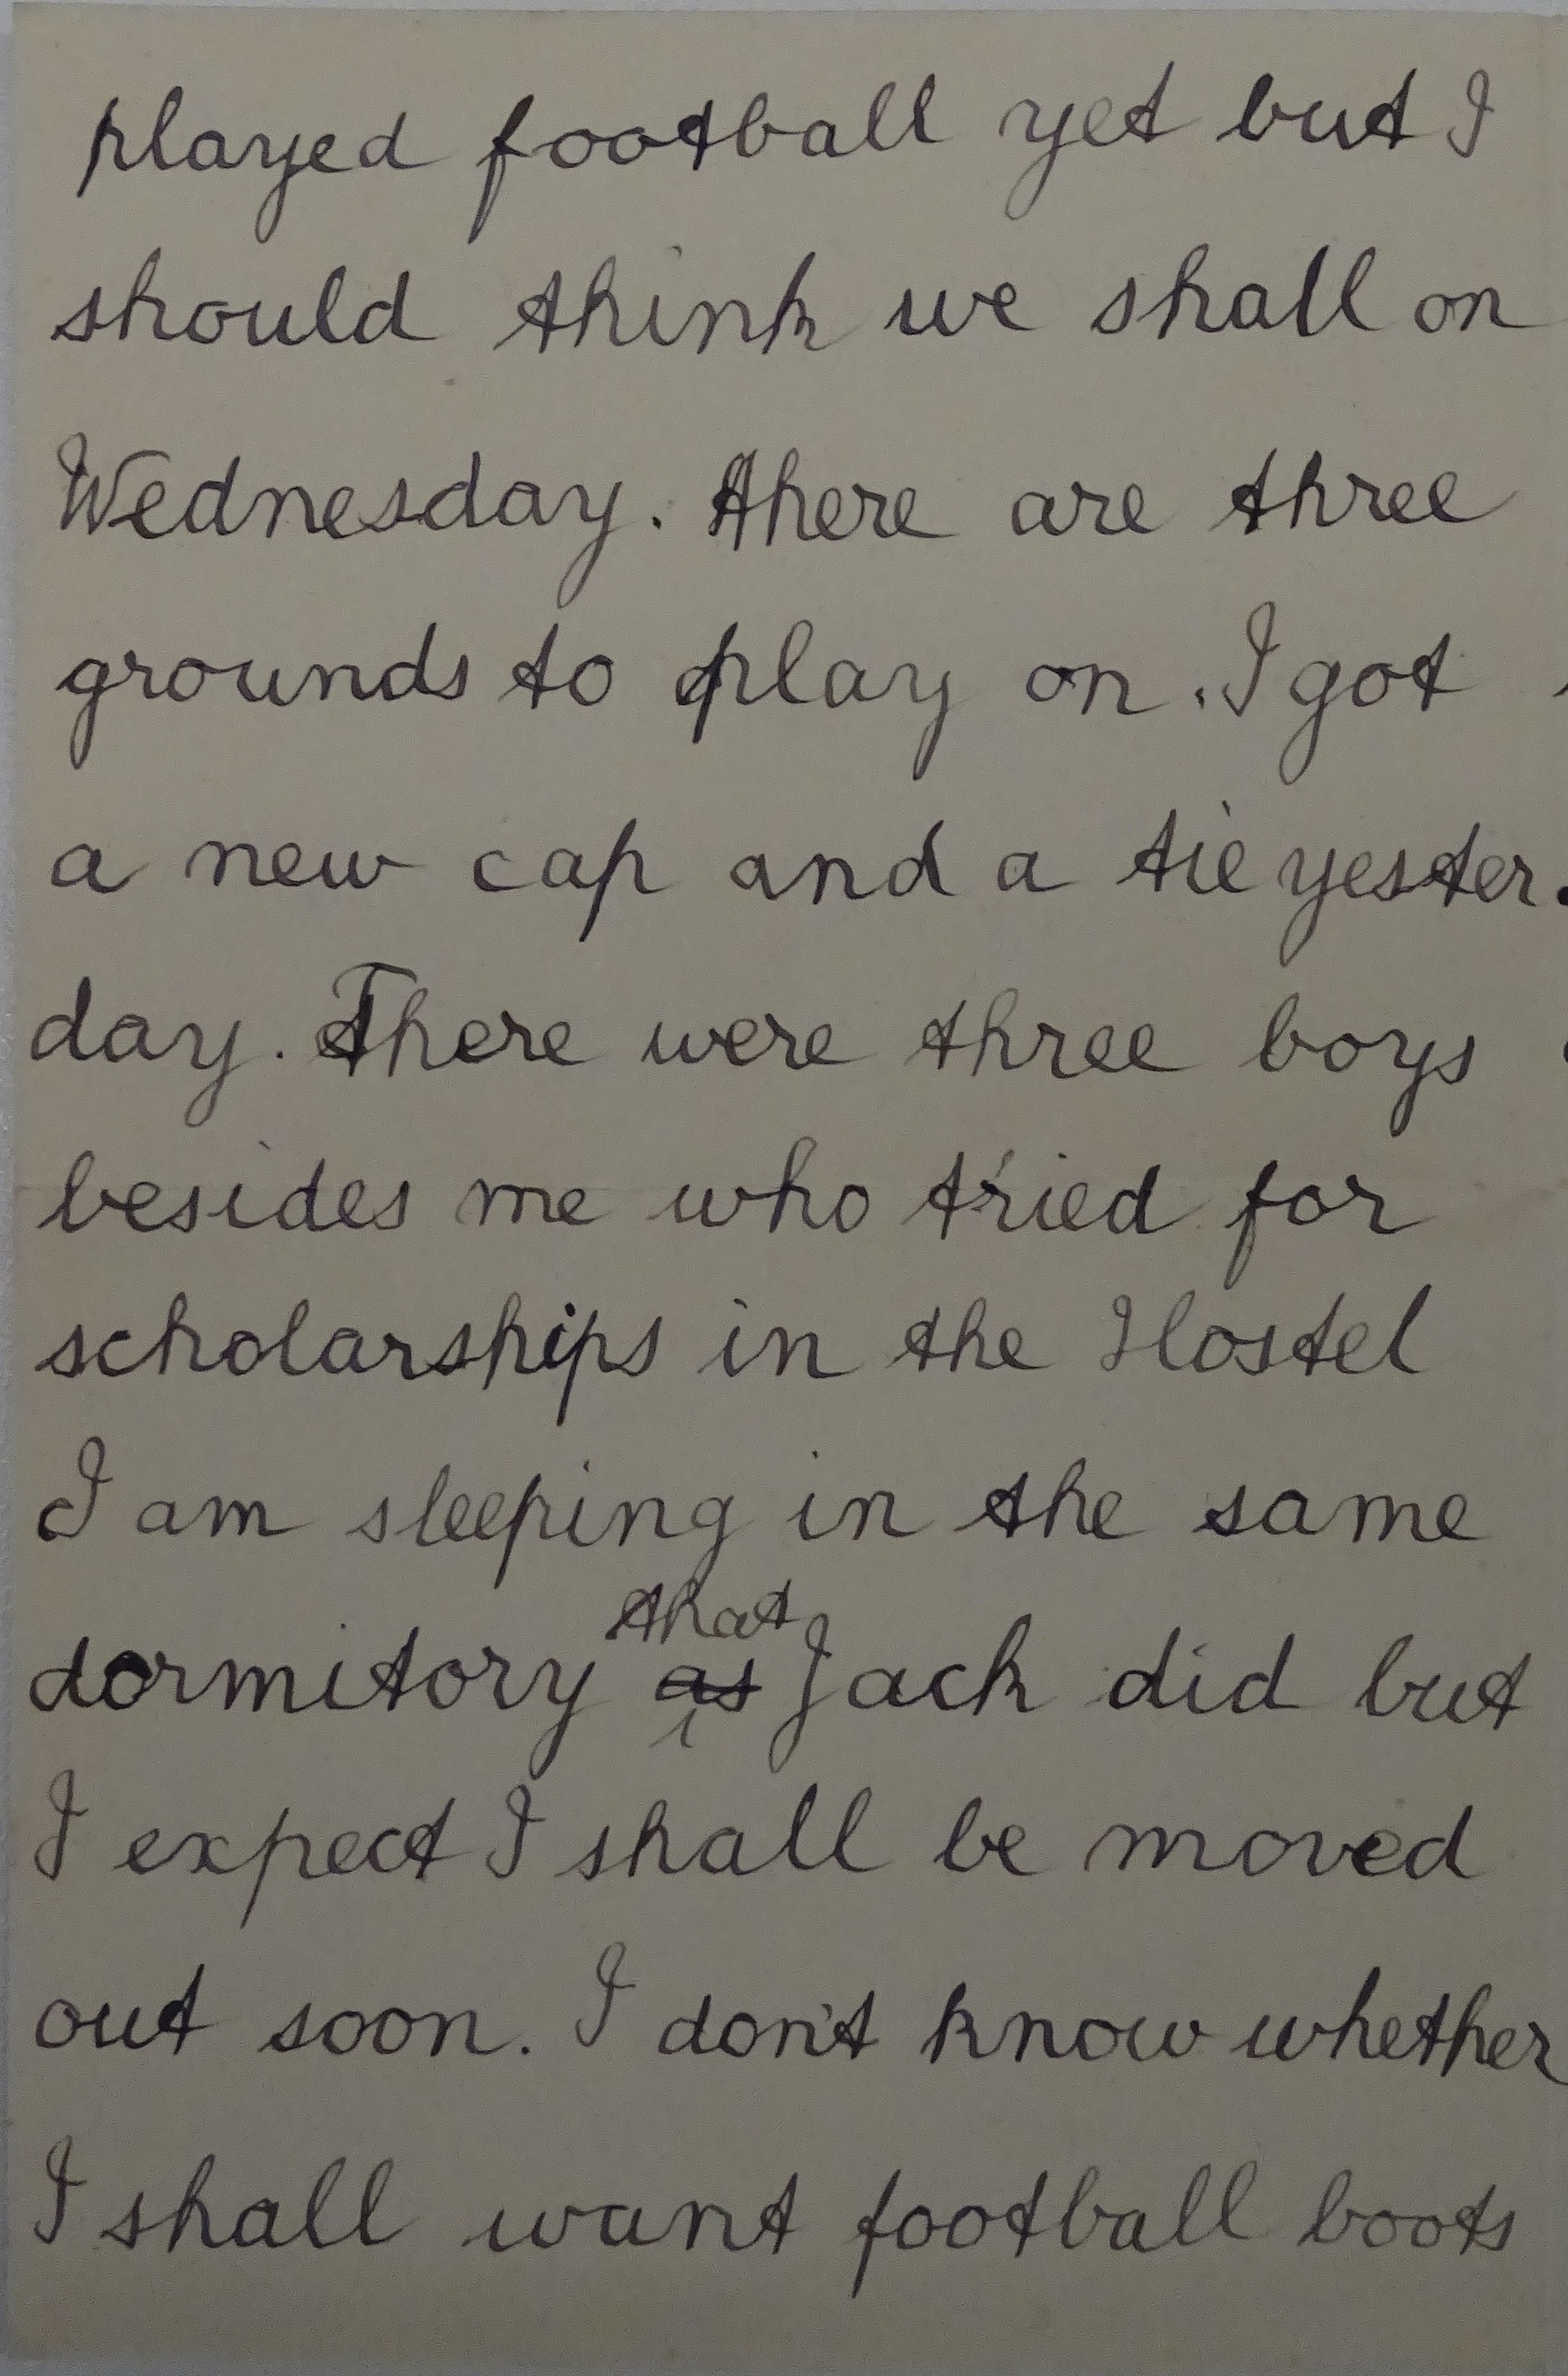 played football yet but I
should think we shall on
Wednesday. There are three
grounds to play on. I got
a new cap and a tie yester-
day. There were three boys
besides me who tried for
scholarships in the Hostel
I am sleeping in the same
that
dormitory as Jack did but
I expect I shall be moved
out soon. I don't know whether
I shall want football boots